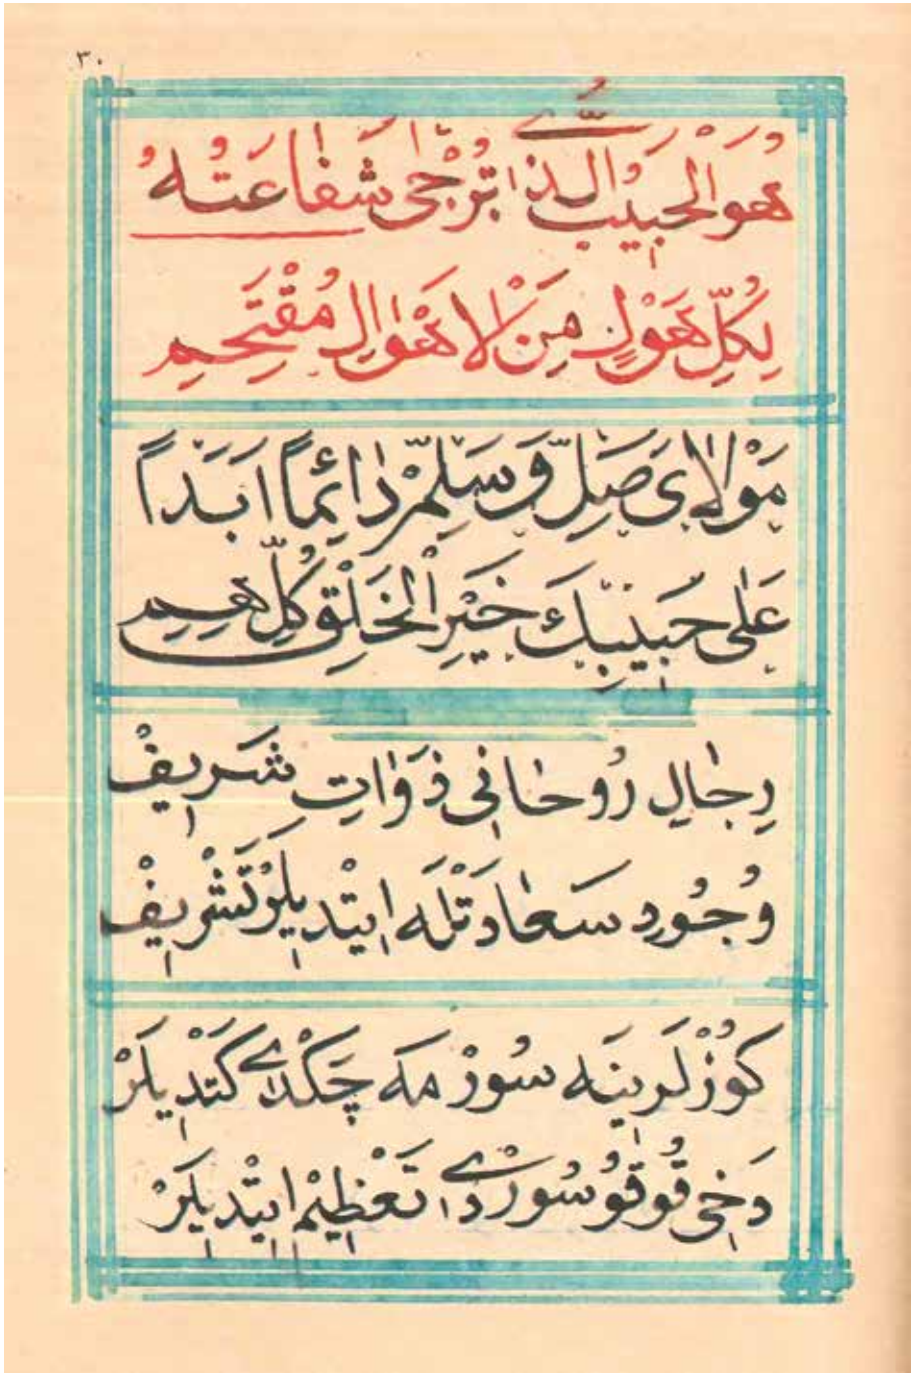 ٣٠
هُوَ الْحَبِيبُ الَّذِى تُرْجٰى شَفَاعَتُهُ
لِكُلِّ هَوْلٍ مِنَ الْاَهْوَالِ مُقْتَحِمِ
مَوْلَاىَ صَلِّ وَسَلِّمْ دَائِمًا اَبَدًا
عَلٰى حَبِيبِكَ خَيْرِ الْخَلْقِ كُلِّهِمِ
رِجٰالِ رُوحٰانِى ذَوٰاتِ شَرِيفْ
وُجُودِ سَعٰادَتْلَه اِيتْدِيلَرْ تَشْرِيفْ
كُوزْلَرِينَه سُورْمَه چَكْدِى كَتْدِيلَرْ
دَخِى قُوقُو سُورْدِى تَعْظِيمْ اِيتْدِيلَرْ